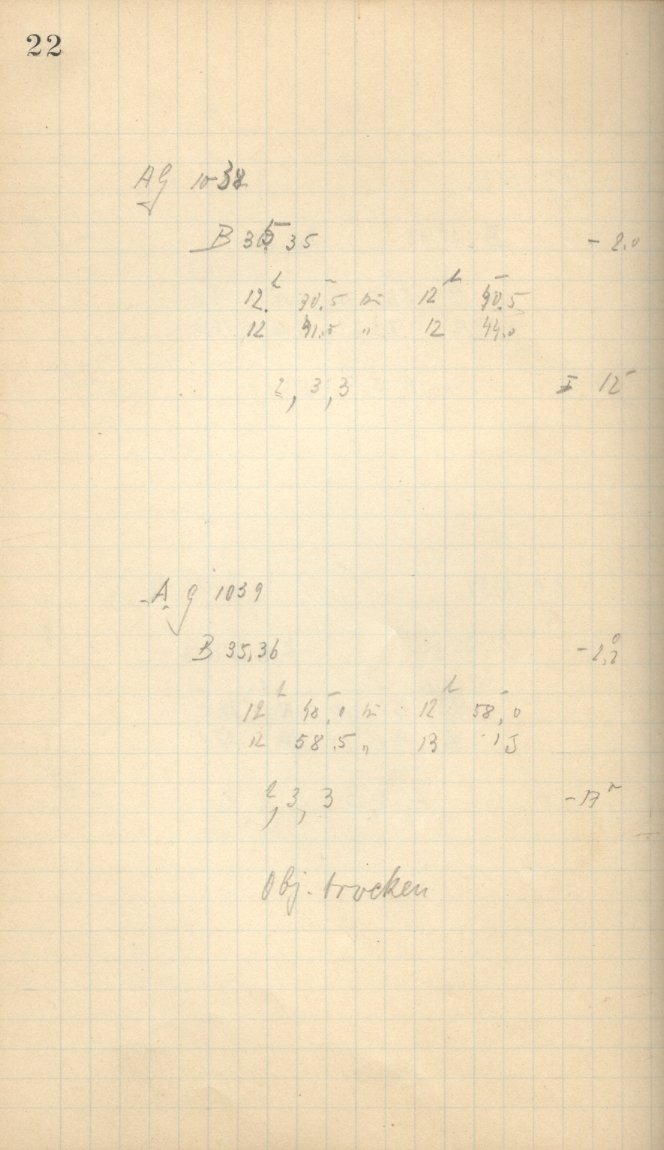 22
AG 1038
B 35 35 - 2.0
12. h 30.5 bis 12 h 40.5
12 41.0 " 12 44.0
2, 3, 3 I 12
AG 1039
B 35,36 - 2,2
12 h 48,0 bis 12 h 58,0
12 58.5 " 13 1,5
2, 3, 3 - 17
Obj. trocken